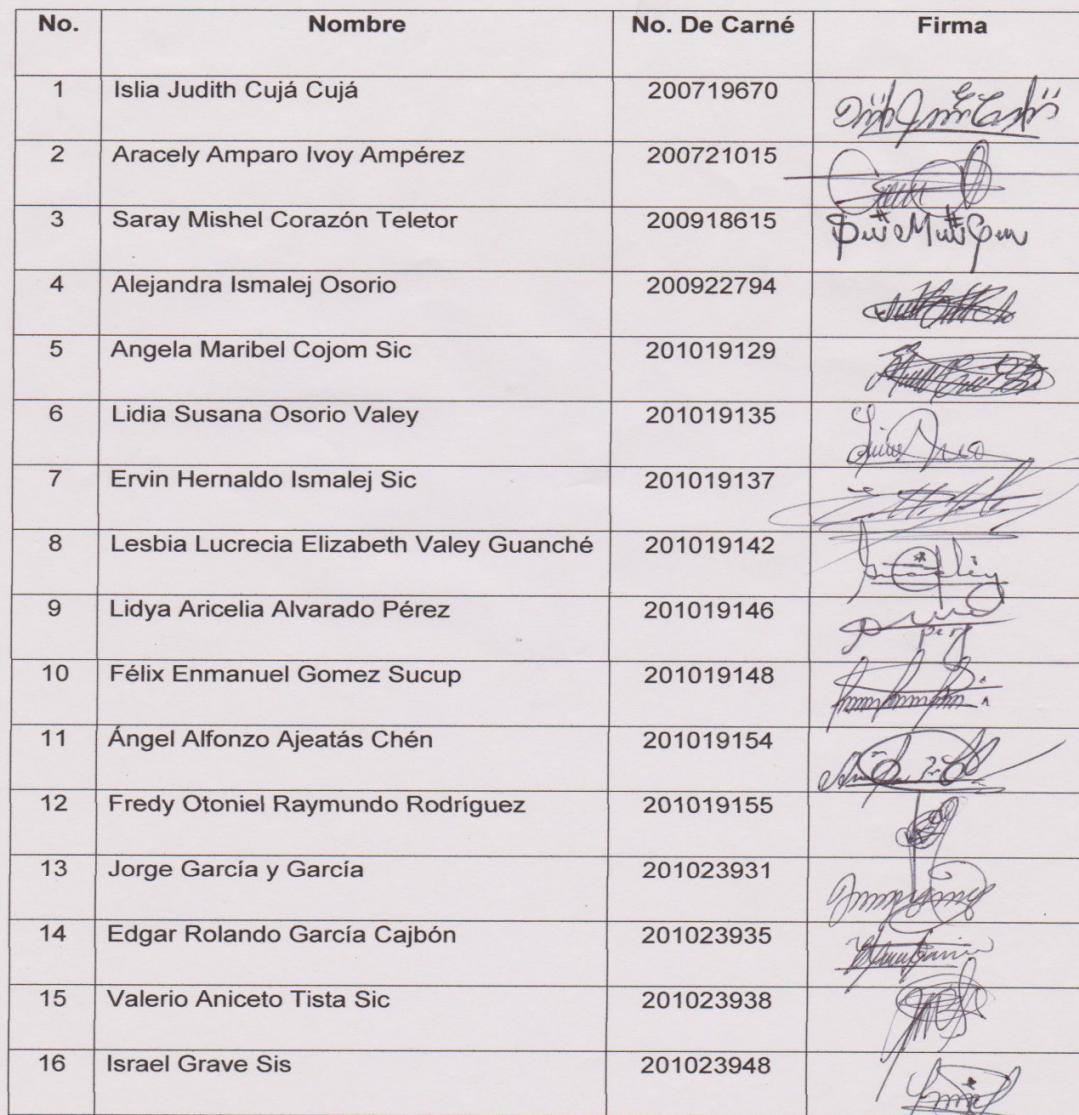 No. Nombre No. De Carné Firma
1 Islia Judith Cujá Cujá 200719670
2 Aracely Amparo Ivoy Ampérez 200721015
3 Saray Mishel Corazón Teletor 200918615
4 Alejandra Ismalej Osorio 200922794
5 Angela Maribel Cojom Sic 201019129
6 Lidia Susana Osorio Valey 201019135
7 Ervin Hernaldo Ismalej Sic 201019137
8 Lesbia Lucrecia Elizabeth Valey Guanché 201019142
9 Lidya Aricelia Alvarado Pérez 201019146
10 Félix Enmanuel Gomez Sucup 201019148
11 Ángel Alfonzo Ajeatás Chén 201019154
12 Fredy Otoniel Raymundo Rodríguez 201019155
13 Jorge García y García 201023931
14 Edgar Rolando García Cajbón 201023935
15 Valerio Aniceto Tista Sic 201023938
16 Israel Grave Sis 201023948